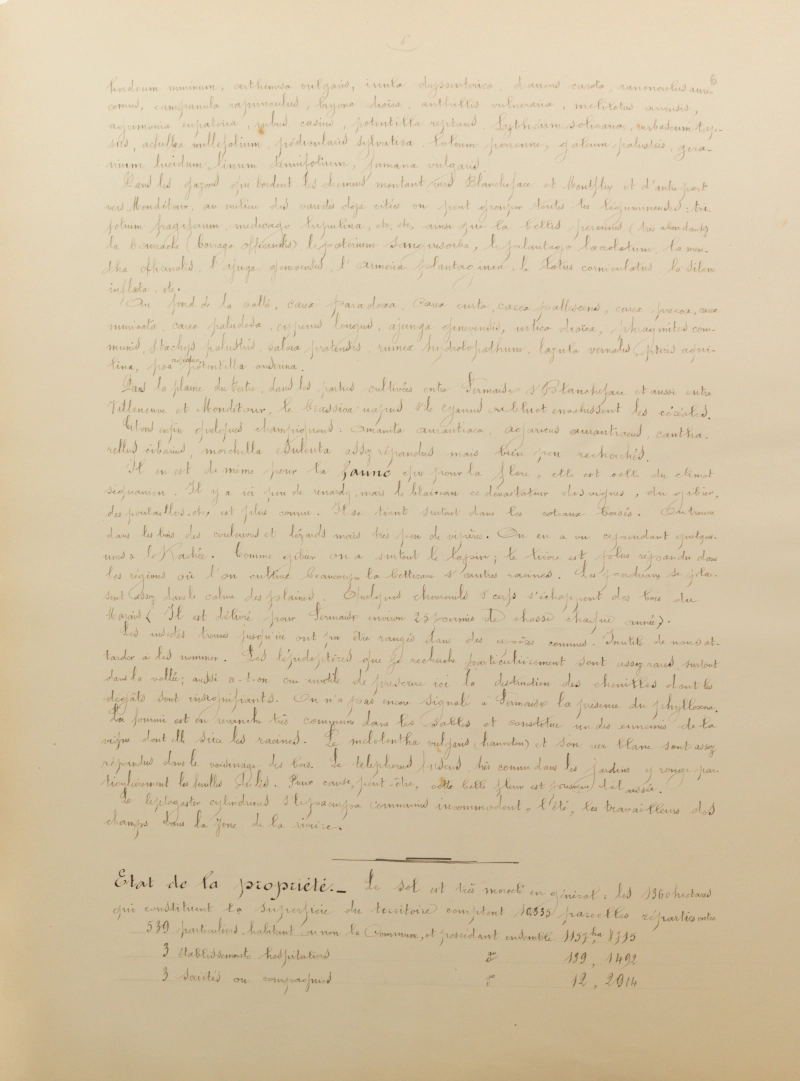 6
hordeum murinum, arthemisa vulgaris, inula dyssenterica, daucus carota, ranonculus auri-
comus, campanula rapunculus, bryona dioïca, anthillis vulneraria, melilotus arvensis,
agrimonia eupatoria, rubus cæsius, potentilla reptans, lythéum salicaria, verbascum tap-
sus, achillea millefolium, pédiculaire sylvatica, lolium perenne, galium palustris, géra-
nium lucidum, linum tenuifolium, fumana vulgaris.
Dans les gazons qui bordent les chemins montant vers Blancheface et Montflix et d'autre part
vers Mondétour, au milieu des variétés déjà citées on peut grouper toutes les légumineuses: tri-
folium fragiferum, medicago lupulina, etc, etc, ainsi que la bellis perennis (très abondante)
la bourrache (borrago officinalis) le potérium sanguisorba, le plantago lanceolatum, la men-
tha officinalis, l'ajuga genevensis, l'armeria plantaginea, le lotus corniculatus, le silene
inflata, etc.
Au fond de la vallée, carex paradoxa, carex curta, carex pallescens, carex præcox, carex
muricata, carex paludosa, cyperus longus, ajunga genevensis, urtica dioïca, phragmites com-
munis, stachys palustris, salvia pratensis, rumex hydrolopathum, luzula vernalis, pteris aqui-
lina, poa aquatica, potentilla anserina.
Dans la plaine du Tertre, dans les parties cultivées entre Sermaise & Blancheface et aussi entre
Villeneuve et Mondétour, le brassica napus & le cyanus ou bluet envahissent les céréales.
Citons enfin quelques champignons: amanita aurantiaca, agaricus aurantiacus, cantha-
rellus cibarius, morchella esculenta assez répandus mais bien peu recherchés.
Il en est de même pour la faune que pour la flore, elle est celle du climat
séquanien. Il y a ici peu de renards, mais le blaireau ce dévastateur des vignes, du gibier,
des poulaillers, etc est plus connu. Il se tient surtout dans les coteaux boisés. On trouve
dans les bois des couleuvres et lézards mais très peu de vipères. On en a vu cependant quelques-
unes à la Rachée. Comme gibier on a surtout le lapin; le lièvre est plus répandu dans
les régions où l'on cultive beaucoup la betterave & autres racines. Les perdreaux se plai-
sent assez dans le calme des plaines. Quelques chevreuils & cerfs s'échappent des bois du
Marais (Il est délivré pour Sermaise environ 25 permis de chasse chaque année).
Les insectes trouvés jusqu'ici ont pu être rangés dans des espèces connues. Inutile de nous at-
tarder à les nommer. Les lépidoptères que je recherche particulièrement sont assez rares surtout
dans la vallée; aussi a-t-on cru inutile de prescrire ici la destruction des chenilles dont les
dégâts sont insignifiants. On n'a pas encore signalé à Sermaise la présence du phylloxera.
La fourmi est en revanche très commune dans les sables et constitue un des ennemis de la
vigne dont elle suce les racines. Le melolontha vulgaris (hanneton) et son ver blanc sont assez
répandus dans le voisinage des bois. Le telephorus fuscus, très connu dans les jardins y ronge par-
ticulièrement les feuilles de lis. Pour cause, peut-être, cette belle fleur est presque délaissée.
Le leptogaster cylindricus & l'empis communis incommodent, l'été, les travailleurs des
champs dans la zone de la rivière.
Etat de la propriété._ Le sol est très morcelé en général: les 1360 hectares
qui constituent la superficie du territoire comptent 10.335 parcelles réparties entre
530 particuliers habitant ou non la Commune, et possédant ensemble 1157 ha, 8715
3 établissements hospitaliers d° 139, 1492
3 sociétés ou compagnies d° 12, 2014